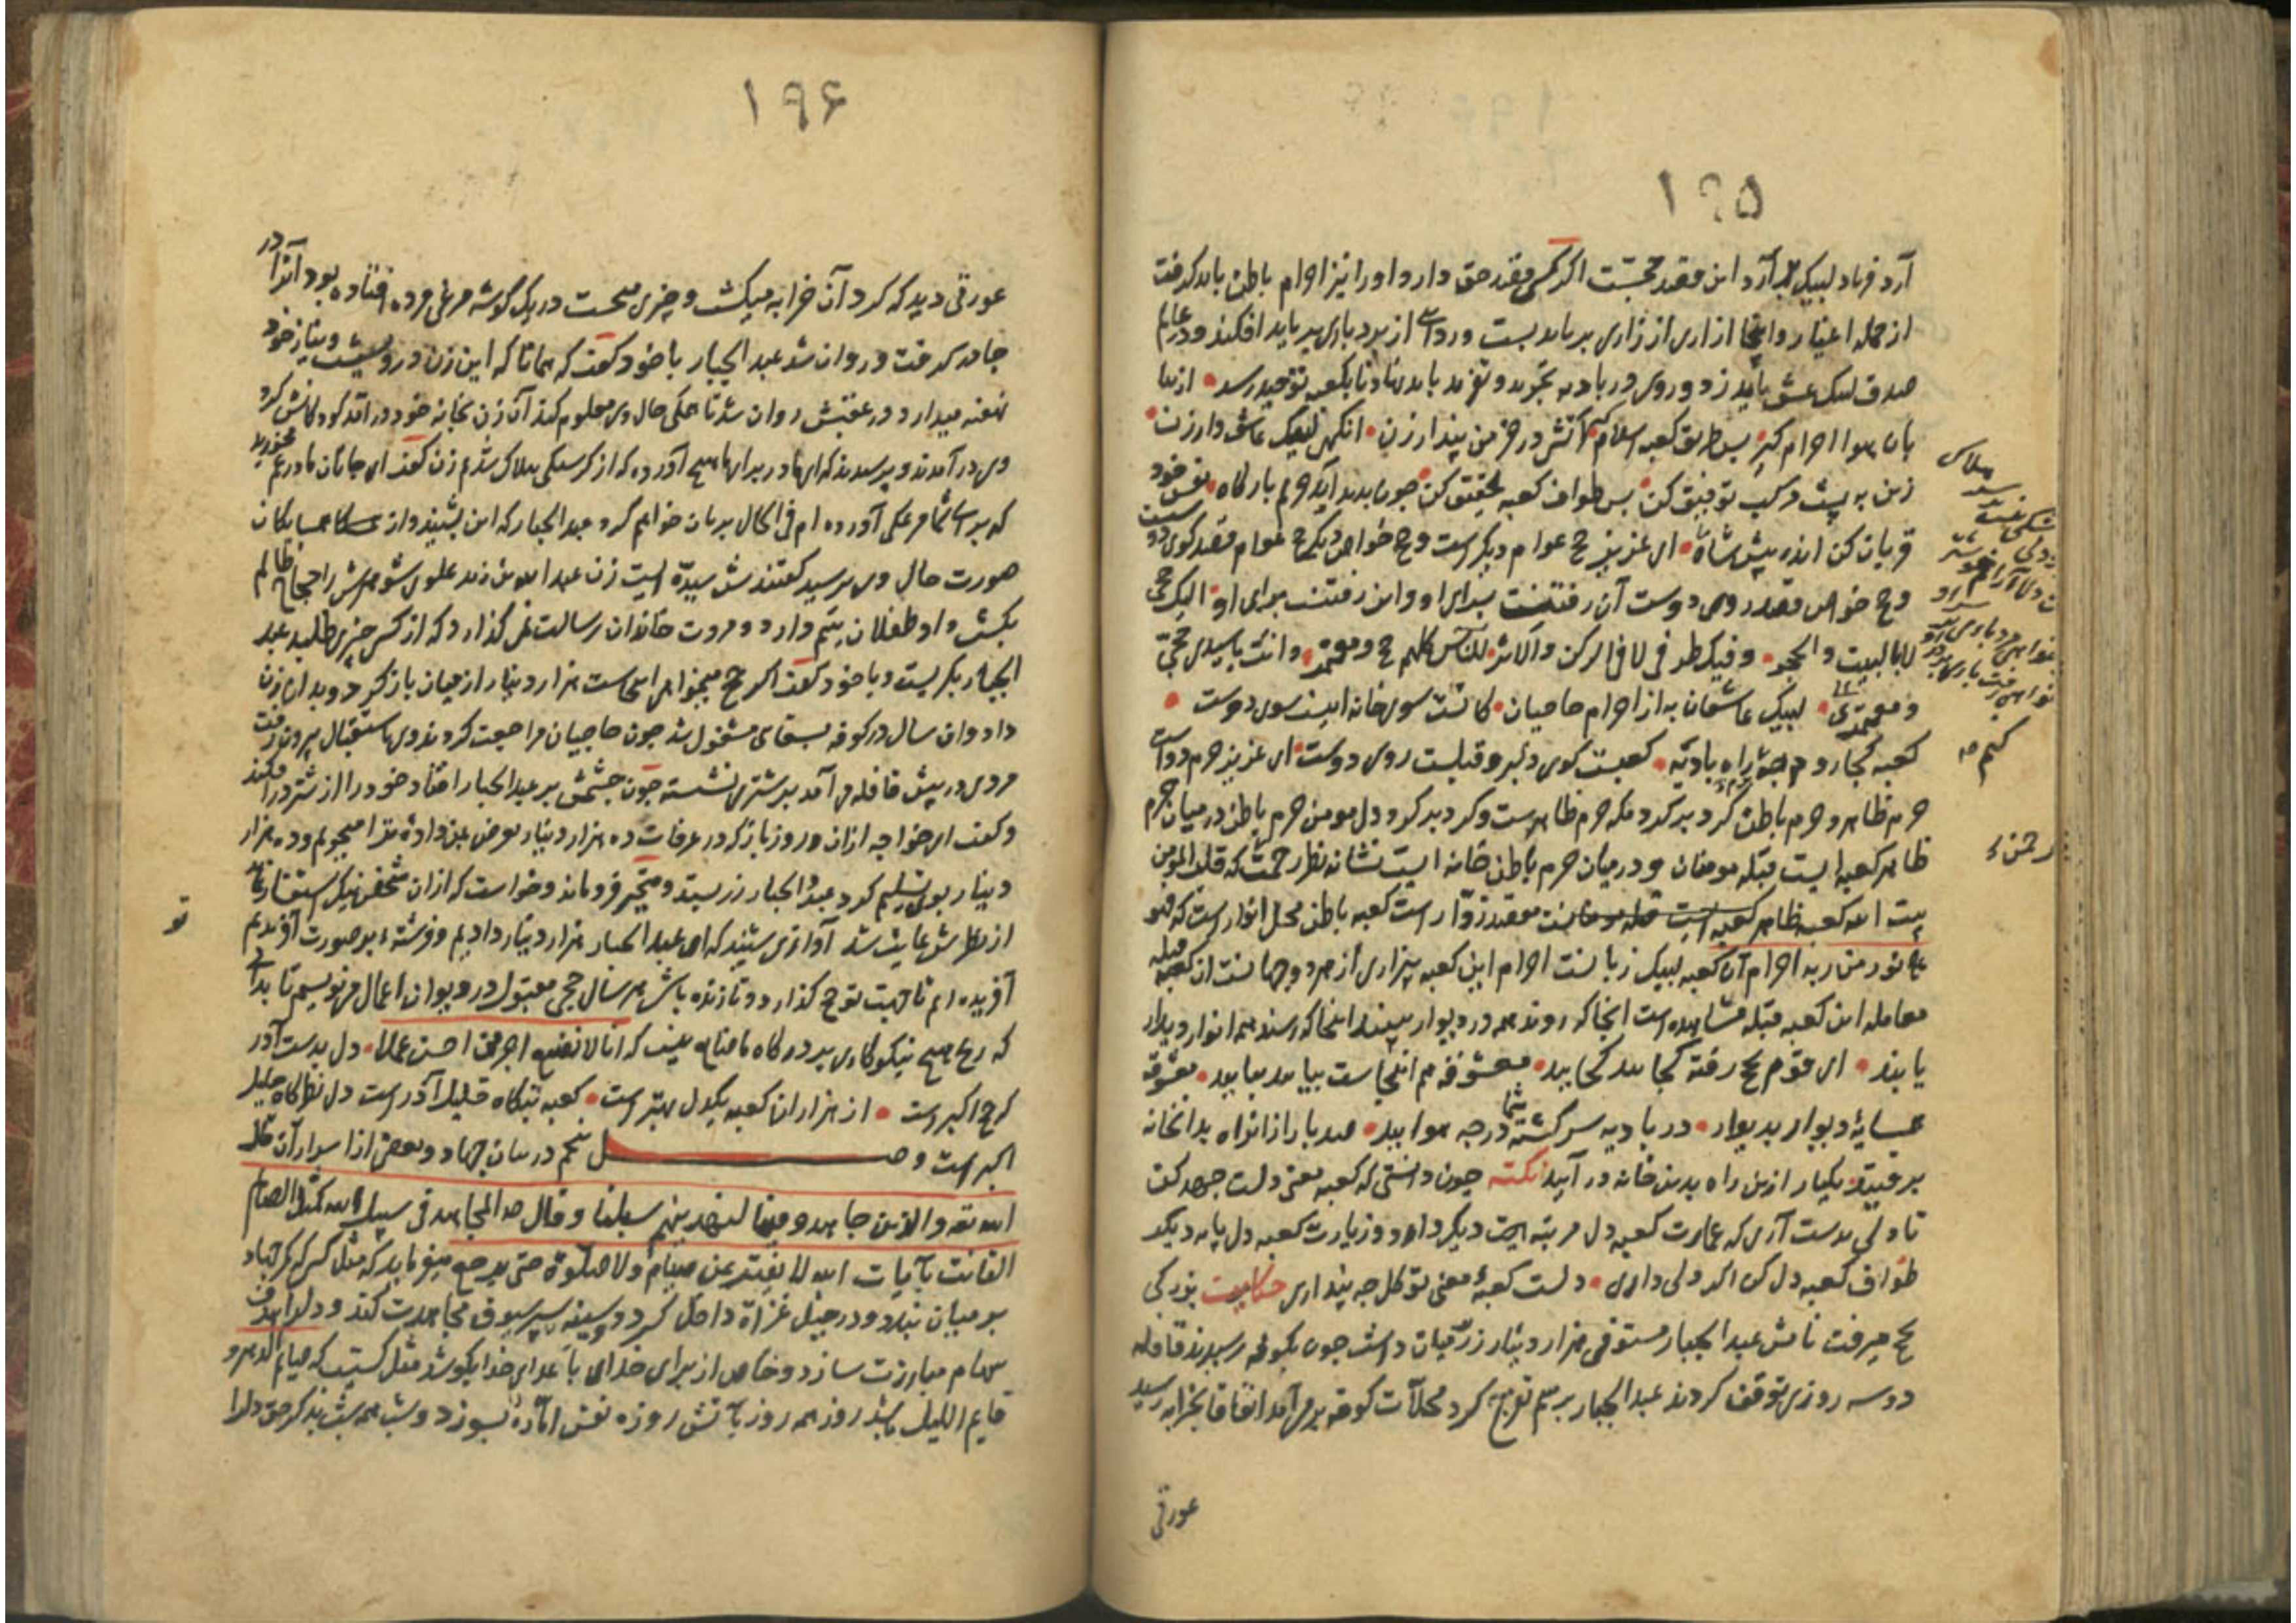 ۱۹۵
آرد فریاد لبیک برآرد این مقصد حجتست اگر کسی مقصد حق دارد او را نیز احرام باطن باید گرفت
از جمله اغیار و اینجا ازاری از زاری بر باید بست و ردای از بردباری بر باید افکند و در عالم
صدق لبیک عشق باید زد و روی در بادیه تجرید و تفرید باید نهاد تا بکعبه توحید رسد
احرام گیر پس طریق کعبه اسلام آتش در خرمن پندار زن انگهی لبیک عاشق وار زن
زین به پشت مرکب توفیق کن پس طواف کعبه تحقیق کن چون بدید آید حرم بارگاه نفس خود
قربان کن اندر پیش شاه ای عزیز حج عوام دیگر است و حج خواص دیگر حج عوام قصد کوی دوست
و حج خواص قصد روی دوست آن رفتنست برای او و این رفتنست برای او الیک حجی
لا بالبیت والحجر وفیک طوفی لا فی الرکن والاثر للناس کلهم حج ومعتمر وانت یا سیدی حجی
ومعتمری لبیک عاشقان به از احرام حاجیان کانست سوی خانه اینست سوی دوست
کعبه کجا روم چه برم راه بادیه کعبست کوی دلبر و قبلست روی دوست ای عزیز حرم دو است
حرم ظاهر و حرم باطن گرد بر گرد مکه حرم ظاهرست و گرد بر گرد دل مومن حرم باطن در میان حرم
ظاهر کعبه ایست قبله مومنان و در میان حرم باطن خانه ایست نشانه نظر رحمت که قلب المومن
بیت الله کعبه ظاهر مقصد زوار است کعبه باطن محل انوار است که فهو
علی نور من ربه احرام آن کعبه لبیک زبانست احرام این کعبه بیزاری از هر دو جهانست آن کعبه قبله
معامله این کعبه قبله مشاهده است انجا که روند همه در و دیوار بینند اینجا که رسند همه انوار دیدار
یابند ای قوم بحج رفته کجایید کجایید معشوقه هم اینجاست بیایید بیایید معشوقه
همسایه دیوار بدیوار در بادیه سرگشته شما در چه هوایید صد بار از آن راه بدان خانه
برفتید یکبار ازین راه بدین خانه در آیید نکته چون دانستی که کعبه معنی دلست جهد کن
تا دلی بدست آری که عمارت کعبه دل مرتبه دیگر دارد و زیارت کعبه دل پایه دیگر
طواف کعبه دل کن اگر دلی داری دلست کعبه معنی تو گل چه پنداری حکایت بزرگی
بحج میرفت نامش عبد الجبار مستوفی هزار دینار زر در میان داشت چون بکوفه رسیدند قافله
دو سه روزی توقف کردند عبد الجبار برسم تفرج گرد محلات کوفه بر می آمد اتفاقا بخرابه رسید
عورتی
کنم
رحمن
۱۹۶
عورتی دید که گرد آن خرابه میگشت و چیزی میجست در یک گوشه مرغی مرده افتاده بود آنرا در
جامه گرفت و روان شد عبد الجبار با خود گفت که همانا که این زن درویشست و نیاز خود
نهفته میدارد در عقبش روان شد تا حال وی معلوم کند آن زن بخانه خود در آمد کودکانش گرد
وی در آمدند و پرسیدند که ای مادر برای ما چه آورده که از گرسنگی هلاک شدیم زن گفت ای جانان مادر غم مخورید
که برای شما مرغکی آورده ام فی الحال بریان خواهم کرد عبد الجبار که این بشنید و از همسایکان
صورت حال وی پرسید گفتندش سیده ایست زن عبد الله بن زید علوی شوهرش را حجاج ظالم
بکشت و او طفلان یتیم دارد و مروت خاندان رسالت نمی گذارد که از کسی چیزی طلبد عبد
الجبار بگریست و با خود گفت اگر حج میخواهی اینجاست هزار دینار از میان باز کرد و بدان زن
داد و آن سال در کوفه بسقایی مشغول شد چون حاجیان مراجعت کردند وی باستقبال بیرون رفت
مردی در پیش قافله می آمد بر شتری نشسته چون چشمش بر عبد الجبار افتاد خود را از شتر در افکند
و گفت ای خواجه از آن روز باز که در عرفات ده هزار دینار بمن داده ترا میجویم و ده هزار
دینار بوی تسلیم کرد عبد الجبار زر بستد و متحیر فرو ماند و خواست که از آن شخص نیکو استفسار نماید
از نظرش غایب شد آوازی شنید که ای عبد الجبار هزار دینار دادی ده هزار دینار دادیم و فرشته بر صورت تو
آفریده ایم تا جهت تو حج گذارد و تا زنده باشی هر سال حجی مقبول در دیوان اعمال تو مینویسیم تا بدانی
که رنج هیچ نیکوکاری بر درگاه ما ضایع نیست که انا لا نضیع اجر من احسن عملا دل بدست آور
که حج اکبر است از هزاران کعبه یکدل بهتر است کعبه بنگاه خلیل آذرست دل نظرگاه جلیل
اکبر است وصل پنجم در بیان جهاد و بعضی از اسرار آن قال
الله تعالی والذین جاهدوا فینا لنهدینهم سبلنا وقال المجاهد فی سبیل الله کمثل الصائم
القانت بآیات الله لا یفتر من صیام ولا صلوة حتی یرجع میفرماید که مثل کسی که کمر جهاد
بر میان بندد و در خیل غزاة داخل گردد و سینه سپر سیوف مجاهدت کند و دل را هدف
سهام مبارزت سازد و خاص از برای خدای با اعدای خدا بکوشد مثل کسیست که صایم الدهر و
قایم اللیل باشد روز همه روز بآتش روزه نفس اماره بسوزد و شب همه شب بذکر حق دل را
تو